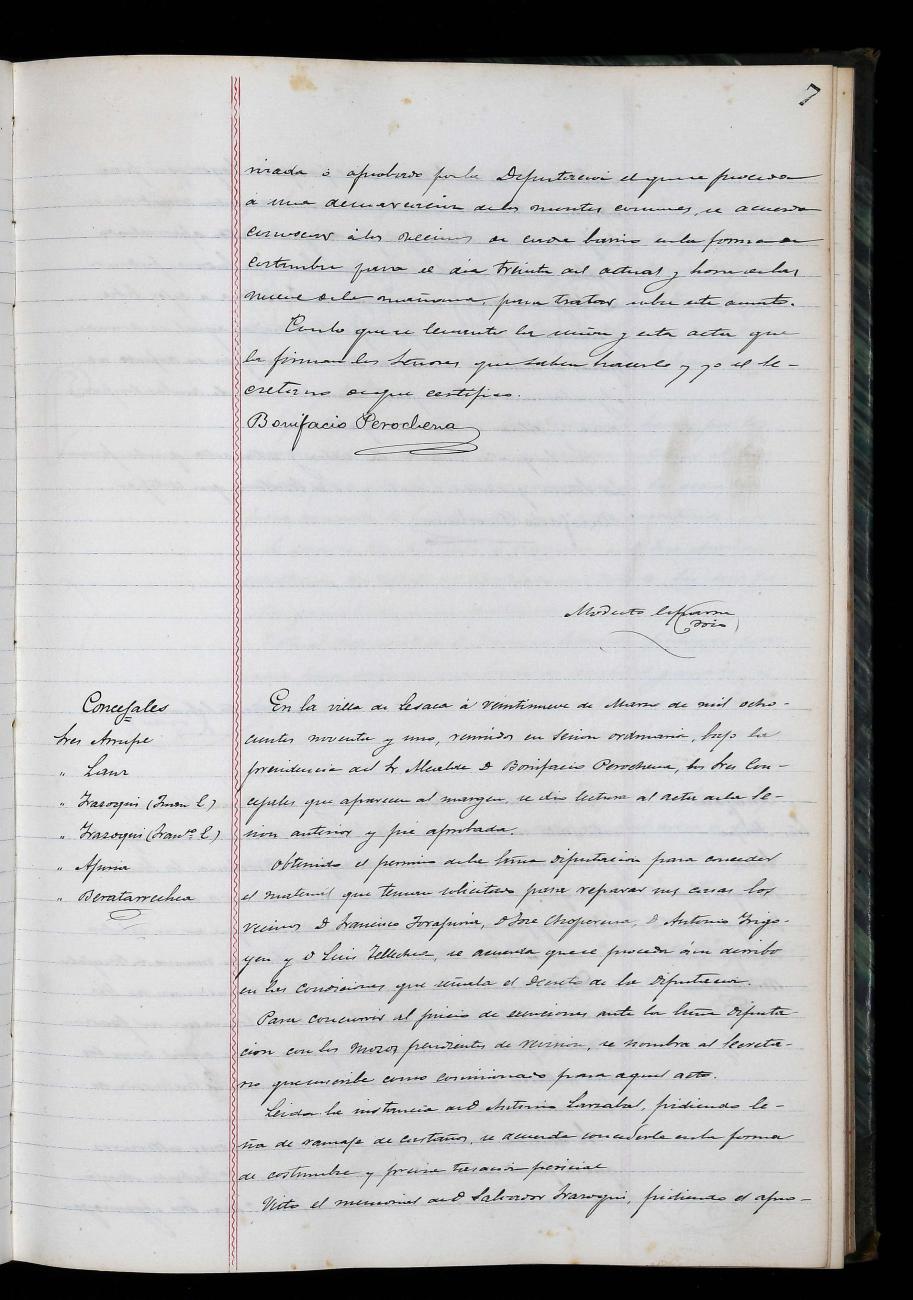 7
nizada ó aprobado por la Diputacion el que se proceda
á una demarcacion de los montes comunes, se acuerda
convocar á los vecinos de cada barrio en la forma de
costumbre para el dia treinta del actual y hora de las
nueve de la mañana, para tratar sobre este asunto.
Con lo que se levantó la sesion y esta acta que
la firman los Señores que saben hacerlo y yo el Se-
cretario de que certifico.
Bonifacio Perochena
Modesto
Concejales
Sres Arrupe
" Lanz
" Irazoqui (Juan C.)
" Irazoqui (Franco C.)
"
" Beratarrechea
En la villa de Lesaca á veintinueve de Marzo de mil ocho-
cientos noventa y uno, reunidos en sesion ordinaria, bajo la
presidencia del Sr Alcalde D. Bonifacio Perochena, los Sres Con-
cejales que aparecen al margen, se dió lectura al acta de la se-
sion anterior y fué aprobada.
Obtenido el permiso de la Excma Diputacion para conceder
el material que tenian solicitado para reparar sus casas los
vecinos D. Francisco D. José D. Antonio Irigo-
yen y D. Luis Tellechea, se acuerda que se proceda á su derribo
en las condiciones que señala el decreto de la Diputacion.
Para concurrir al juicio de exenciones ante la Excma Diputa
cion con los mozos pendientes de revision, se nombra al Secreta-
rio que suscribe como comisionado para aquel acto.
Leida la instancia de D. Antonio Larzabal, pidiendo le-
ña de ramaje de castaños, se acuerda concederle en la forma
de costumbre y previa tasacion pericial
Visto el memorial de D. Salvador Irazoqui, pidiendo el apro-